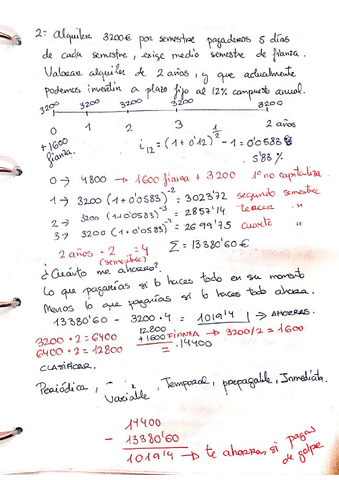 2= Alquiler 3200€ por semestre pagaderos 5 días
de cada semestre, exige medio semestre de fianza.
Valorar alquiler de 2 años, y que actualmente
podemos invertir a plazo fijo al 12% compuesto anual.
3200 3200 3200 3200 3200
0 1 2 3 2 años
+1600
fianza
i12 = (1+0'12)^1/2 - 1 = 0'0583
5'83 %
0 → 4800 → 1600 fianza + 3200 1º no capitaliza
1 → 3200 (1+0'0583)^-2 = 3023'72 segundo semestre
2 → 3200 (1+0'0583)^-3 = 2857'14 tercer "
3 → 3200 (1+0'0583) = 2699'75 cuarto "
2 años · 2 = 4
(semestre)
Σ = 13380'60 €
¿Cuánto me ahorro?
Lo que pagarías si lo haces todo en su momento
Menos lo que pagarías si lo haces todo ahora.
13380'60 - 3200 · 4 = 1019'4 → AHORRAS.
3200 · 2 = 6400
6400 · 2 = 12800
12.800
+1600 FIANZA → 3200/2 = 1600
= 14400
CLASIFICAR.
Periódica, Variable, Temporal, prepagable, Inmediata.
14400
- 13380'60
1019'4 → te ahorras si pagas
de golpe